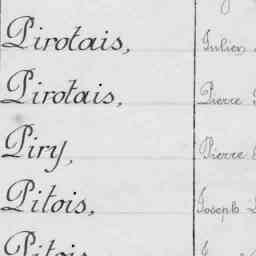 Pirotais, Julien
Pirotais, Pierre
Piry, Pierre
Pitois, Joseph
Pitois